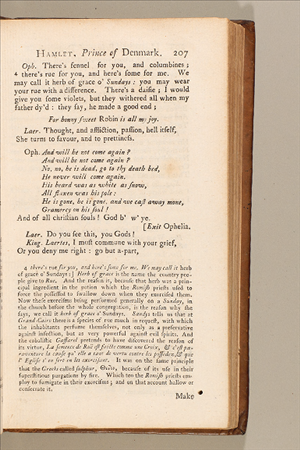 HAMLET, Prince of Denmark. 207
Oph. There's fennel for you, and columbines;
4 there's rue for you, and here's some for me. We
may call it herb of grace o' Sundays: you may wear
your rue with a difference. There's a daisie; I would
give you some violets, but they withered all when my
father dy'd: they say, he made a good end;
For bonny sweet Robin is all my joy.
Laer. Thought, and affliction, passion, hell itself,
She turns to favour, and to prettiness.
Oph. And will he not come again?
And will he not come again?
No, no, he is dead, go to thy death bed,
He never will come again.
His beard was as white as snow,
All flaxen was his pole:
He is gone, he is gone, and we cast away mone,
Gramercy on his soul!
And of all christian souls! God b' w' ye.
[Exit Ophelia.
Laer. Do you see this, you Gods!
King. Laertes, I must commune with your grief,
Or you deny me right: go but a-part,
4 there's rue for you, and here's some for me. We may call it herb
of grace o' Sundays:] Herb of grace is the name the country peo-
ple give to Rue. And the reason is, because that herb was a prin-
cipal ingredient in the potion which the Romish priests used to
force the possessed to swallow down when they exorcised them.
Now these exorcisms being performed generally on a Sunday, in
the church before the whole congregation, is the reason why she
says, we call it herb of grace o' Sundays. Sandys tells us that at
Grand Cairo there is a species of rue much in request, with which
the inhabitants perfume themselves, not only as a preservative
against infection, but as very powerful against evil spirits. And
the cabalistic Gaffarel pretends to have discovered the reason of
its virtue, La semence de Ruë est faicte comme une Croix, & c'est pa-
raventure la cause qu' elle a tant de vertu contre les possedez, & que
l' Eglise s' en sert en les exorcisant. It was on the same principle
that the Greeks called sulphur, because of its use in their
superstitious purgations by fire. Which too the Romish priests em-
ploy to fumigate in their exorcisms; and on that account hallow or
consecrate it.
Make